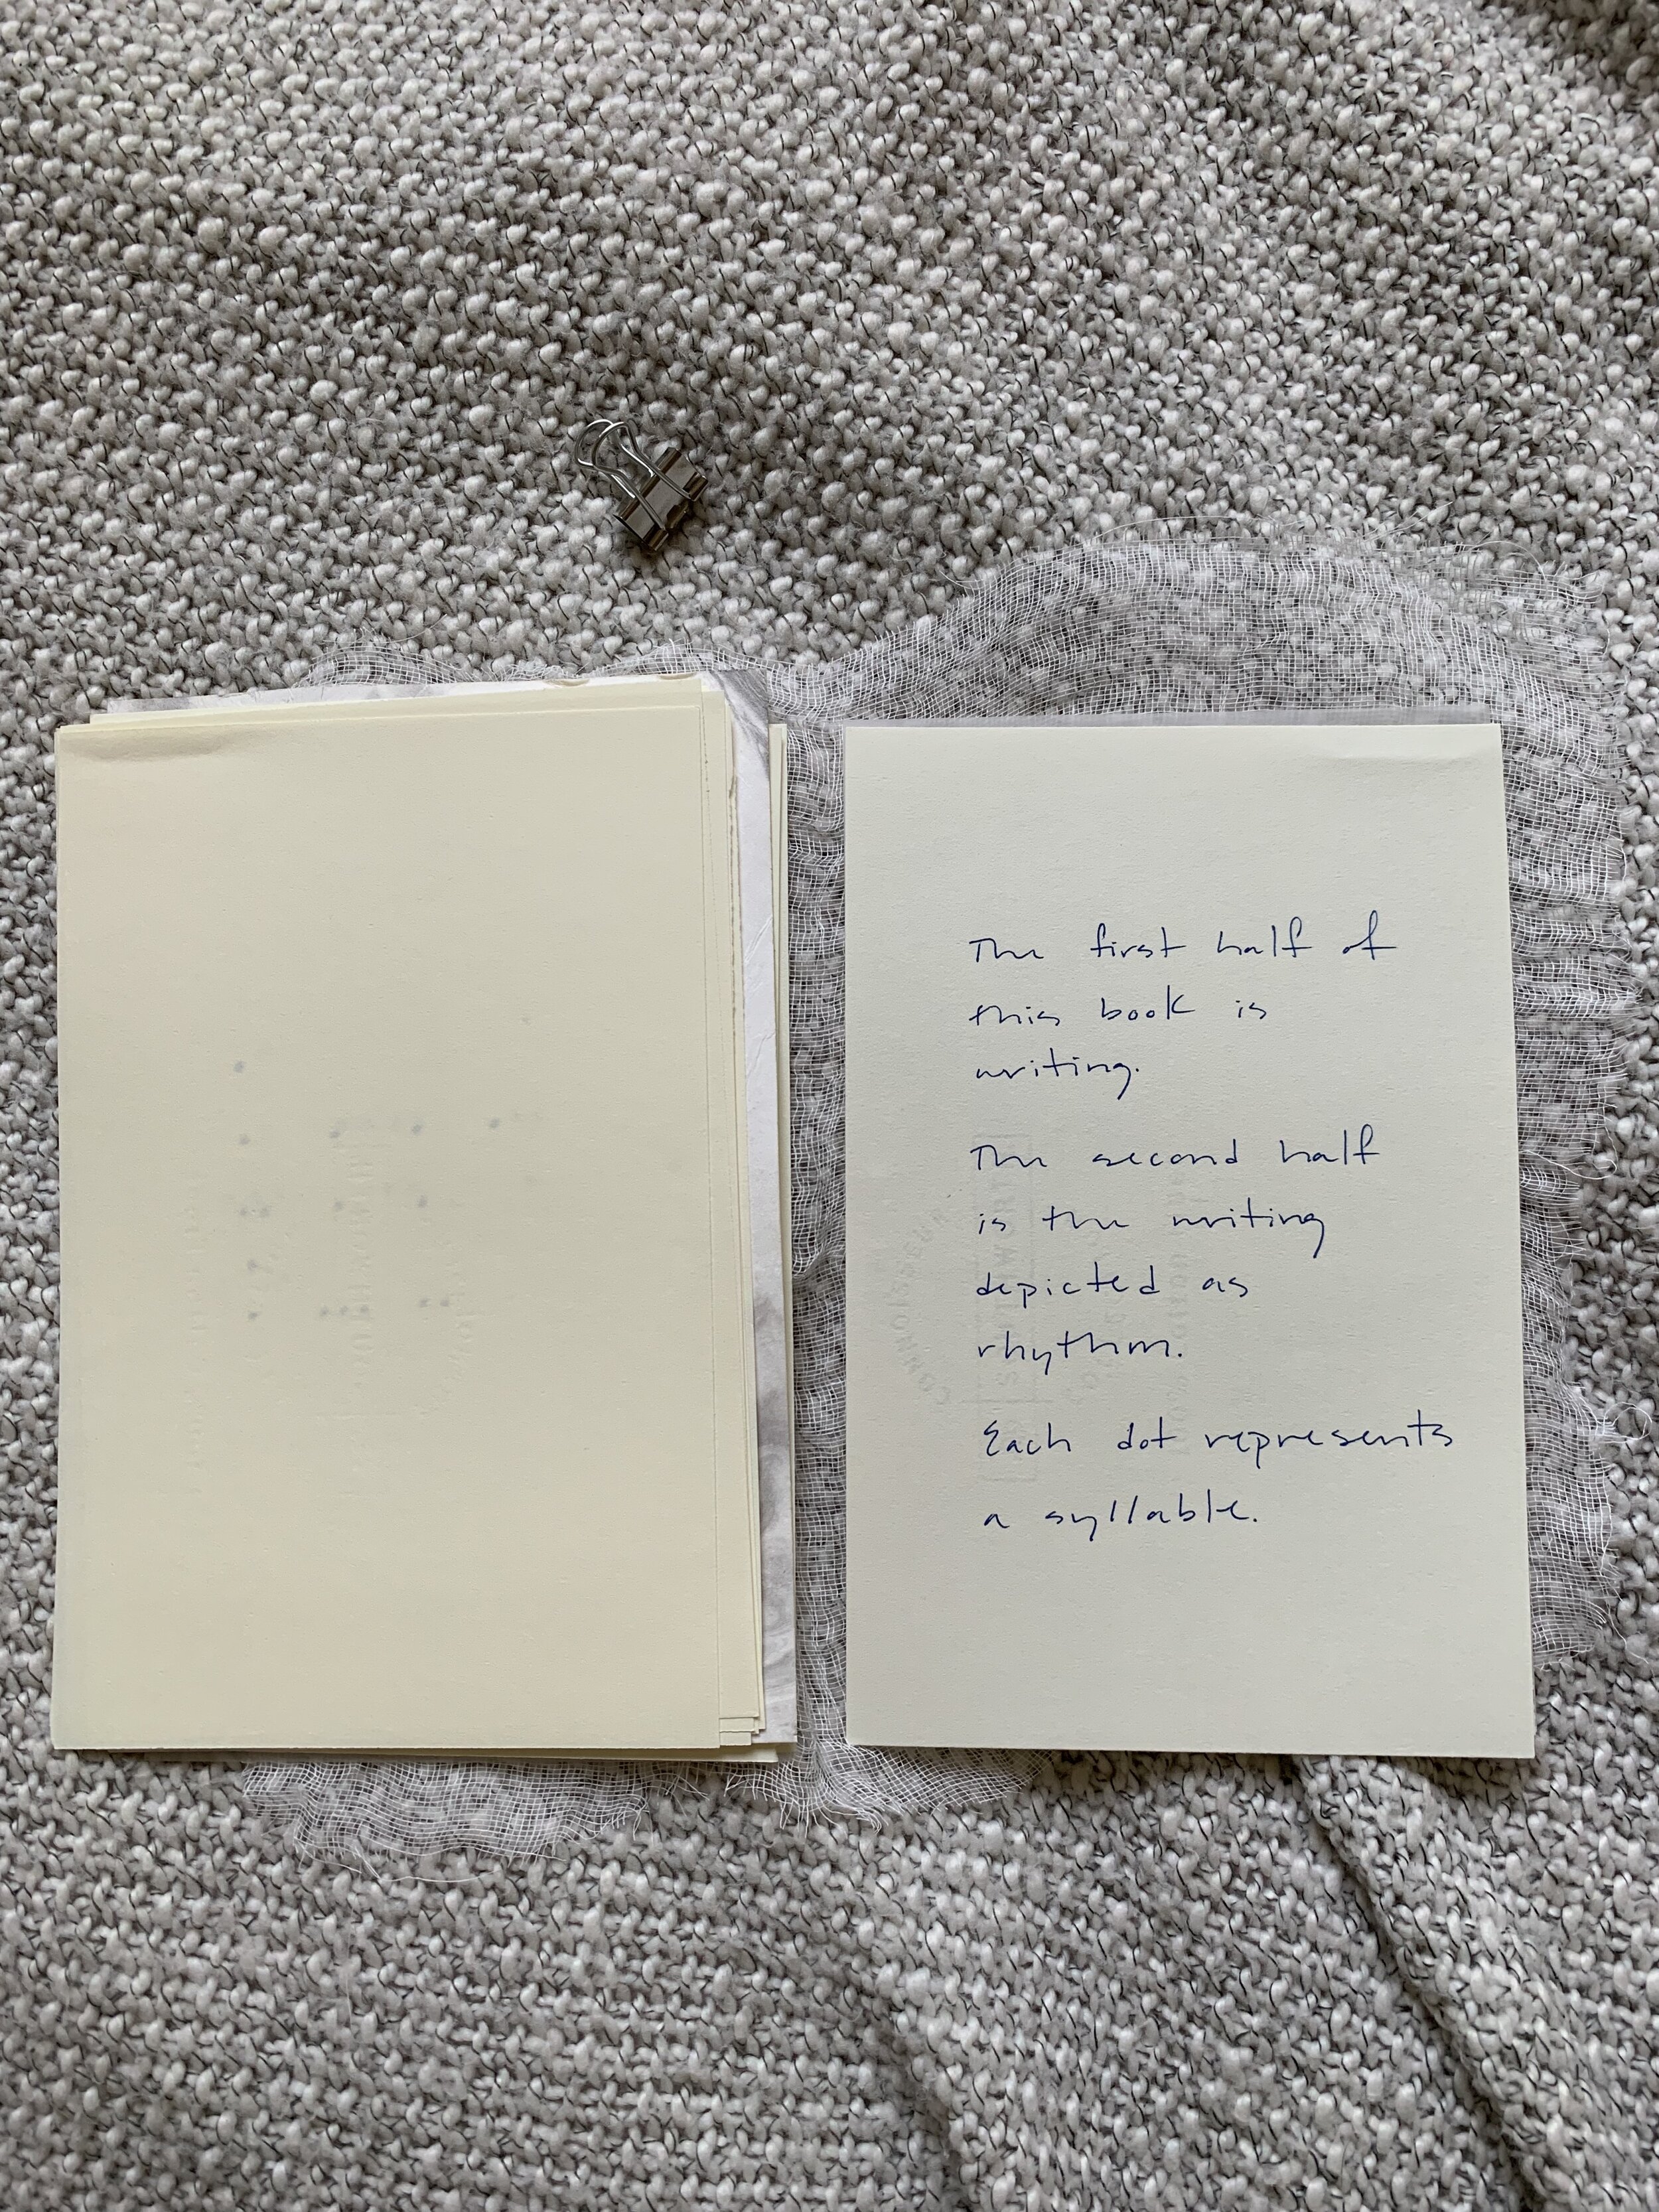 The first half of
this book is
writing.
The second half
is the writing
depicted as
rhythm.
Each dot represents
a syllable.
CONNOISSEUR